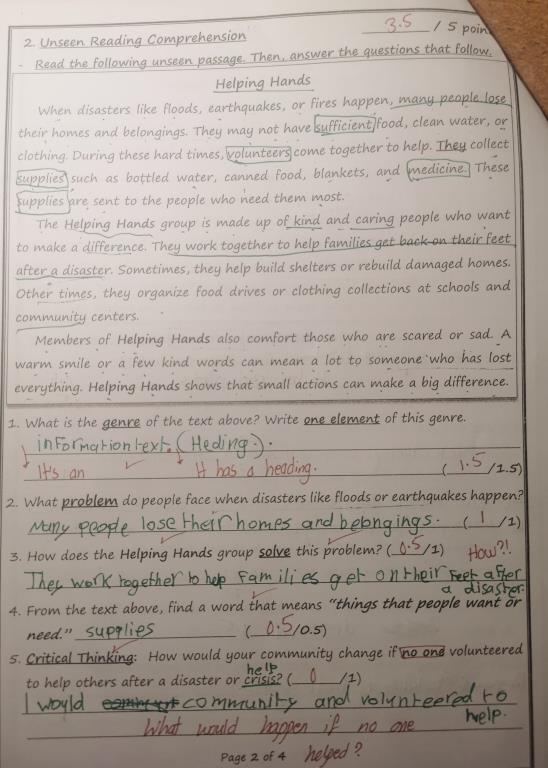 2. Unseen Reading Comprehension 3.5 / 5 poin
- Read the following unseen passage. Then, answer the questions that follow.
Helping Hands
When disasters like floods, earthquakes, or fires happen, many people lose
their homes and belongings. They may not have sufficient food, clean water, or
clothing. During these hard times, volunteers come together to help. They collect
supplies such as bottled water, canned food, blankets, and medicine. These
supplies are sent to the people who need them most.
The Helping Hands group is made up of kind and caring people who want
to make a difference. They work together to help families get back on their feet
after a disaster. Sometimes, they help build shelters or rebuild damaged homes.
Other times, they organize food drives or clothing collections at schools and
community centers.
Members of Helping Hands also comfort those who are scared or sad. A
warm smile or a few kind words can mean a lot to someone who has lost
everything. Helping Hands shows that small actions can make a big difference.
1. What is the genre of the text above? Write one element of this genre.
information text. (Heding).
It's an It has a heading. (1.5/1.5)
2. What problem do people face when disasters like floods or earthquakes happen?
Many people lose their homes and belongings. (1/1)
3. How does the Helping Hands group solve this problem? (0.5/1) How?!
They work together to help families get on their feet after
a disaster.
4. From the text above, find a word that means "things that people want or
need." supplies (0.5/0.5)
5. Critical Thinking: How would your community change if no one volunteered
help
to help others after a disaster or crisis? (0/1)
I would community and volunteered to
help.
What would happen if no one
Page 2 of 4 helped?